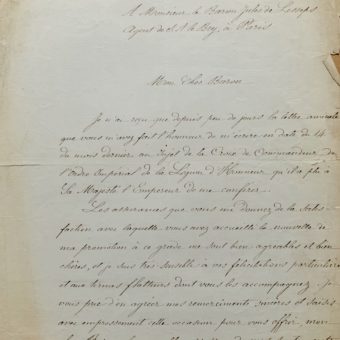 A Monsieur le Baron Jules de Lesseps
Agent de S. A. le Bey, à Paris
Mon cher Baron
Je n'ai reçu que depuis peu de jours la lettre amicale
que vous m'avez fait l'honneur de m'écrire en date du 14
du mois dernier au sujet de la Croix de Commandeur de
l'Ordre Impérial de la Légion d'Honneur qu'il a plu à
Sa Majesté l'Empereur de me conférer.
Les assurances que vous me donnez de la satis-
faction avec laquelle vous avez accueilli la nouvelle de
ma promotion à ce grade me sont bien agréables et bien
chères, et je suis très sensible à vos félicitations particulières
et aux termes flatteurs dont vous les accompagnez. Je
vous prie d'en agréer mes remerciments sincères et saisis
avec empressement cette occasion pour vous offrir, mon